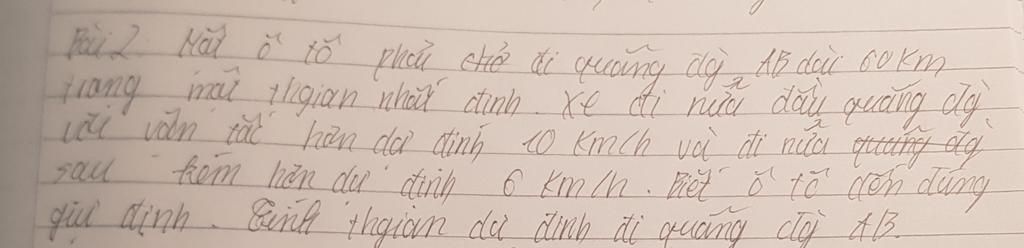 Bài 2 Một ô tô phải chở đi quãng đg AB dài 60 km
trong một thgian nhất định. Xe đi nửa đầu quãng đg
với vân tốc hơn dự định 10 km/h và đi nửa quãng đg
sau kém hơn dự định 6 km/h. Biết ô tô đến đúng
giự định. Tính thgian dự định đi quãng đg AB.